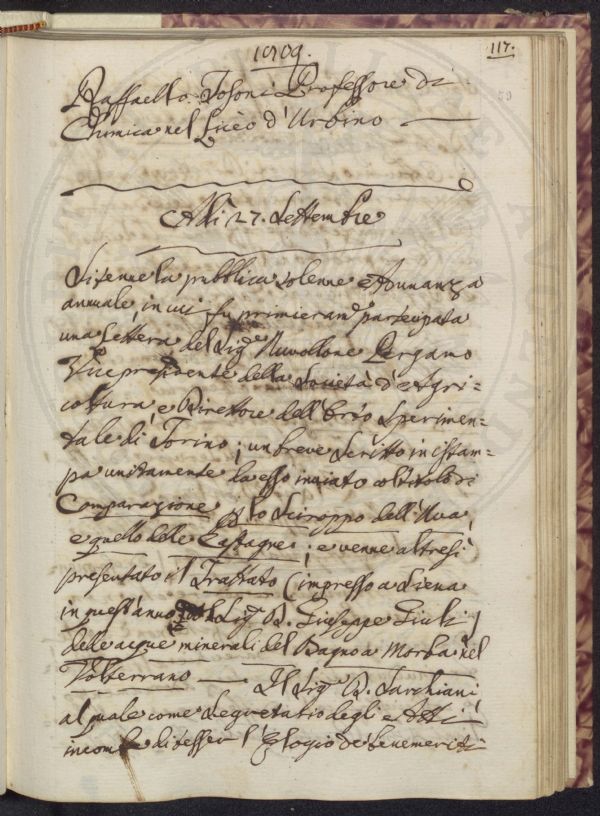 1809.
117.
59
Raffaello Tosoni Professore di
Chimica nel Liceo d'Urbino
Alli 27. Settembre
Si tenne la pubblica solenne Adunanza
annuale, in cui fu primieram.e partecipata
una Lettera del Sig.e Nuvollone Pergamo
Vice presidente della Società d'Agri=
coltura, e Direttore dell'Orto Sperimen=
tale di Torino; un breve Scritto in istam=
pa unitamente da esso inviato col titolo di
Comparazione lo Sciroppo dell'Uva,
e quello delle Castagne; e venne altresì
presentato il Trattato (impresso a Siena
in quest'anno dal Sig.e D. Giuseppe Giulj)
delle acque minerali del Bagno a Morba nel
Volterrano — Il Sig.e D. Sarchiani,
al quale come Segretario degli Atti
incombe di tesser l'Elogio de' benemeriti